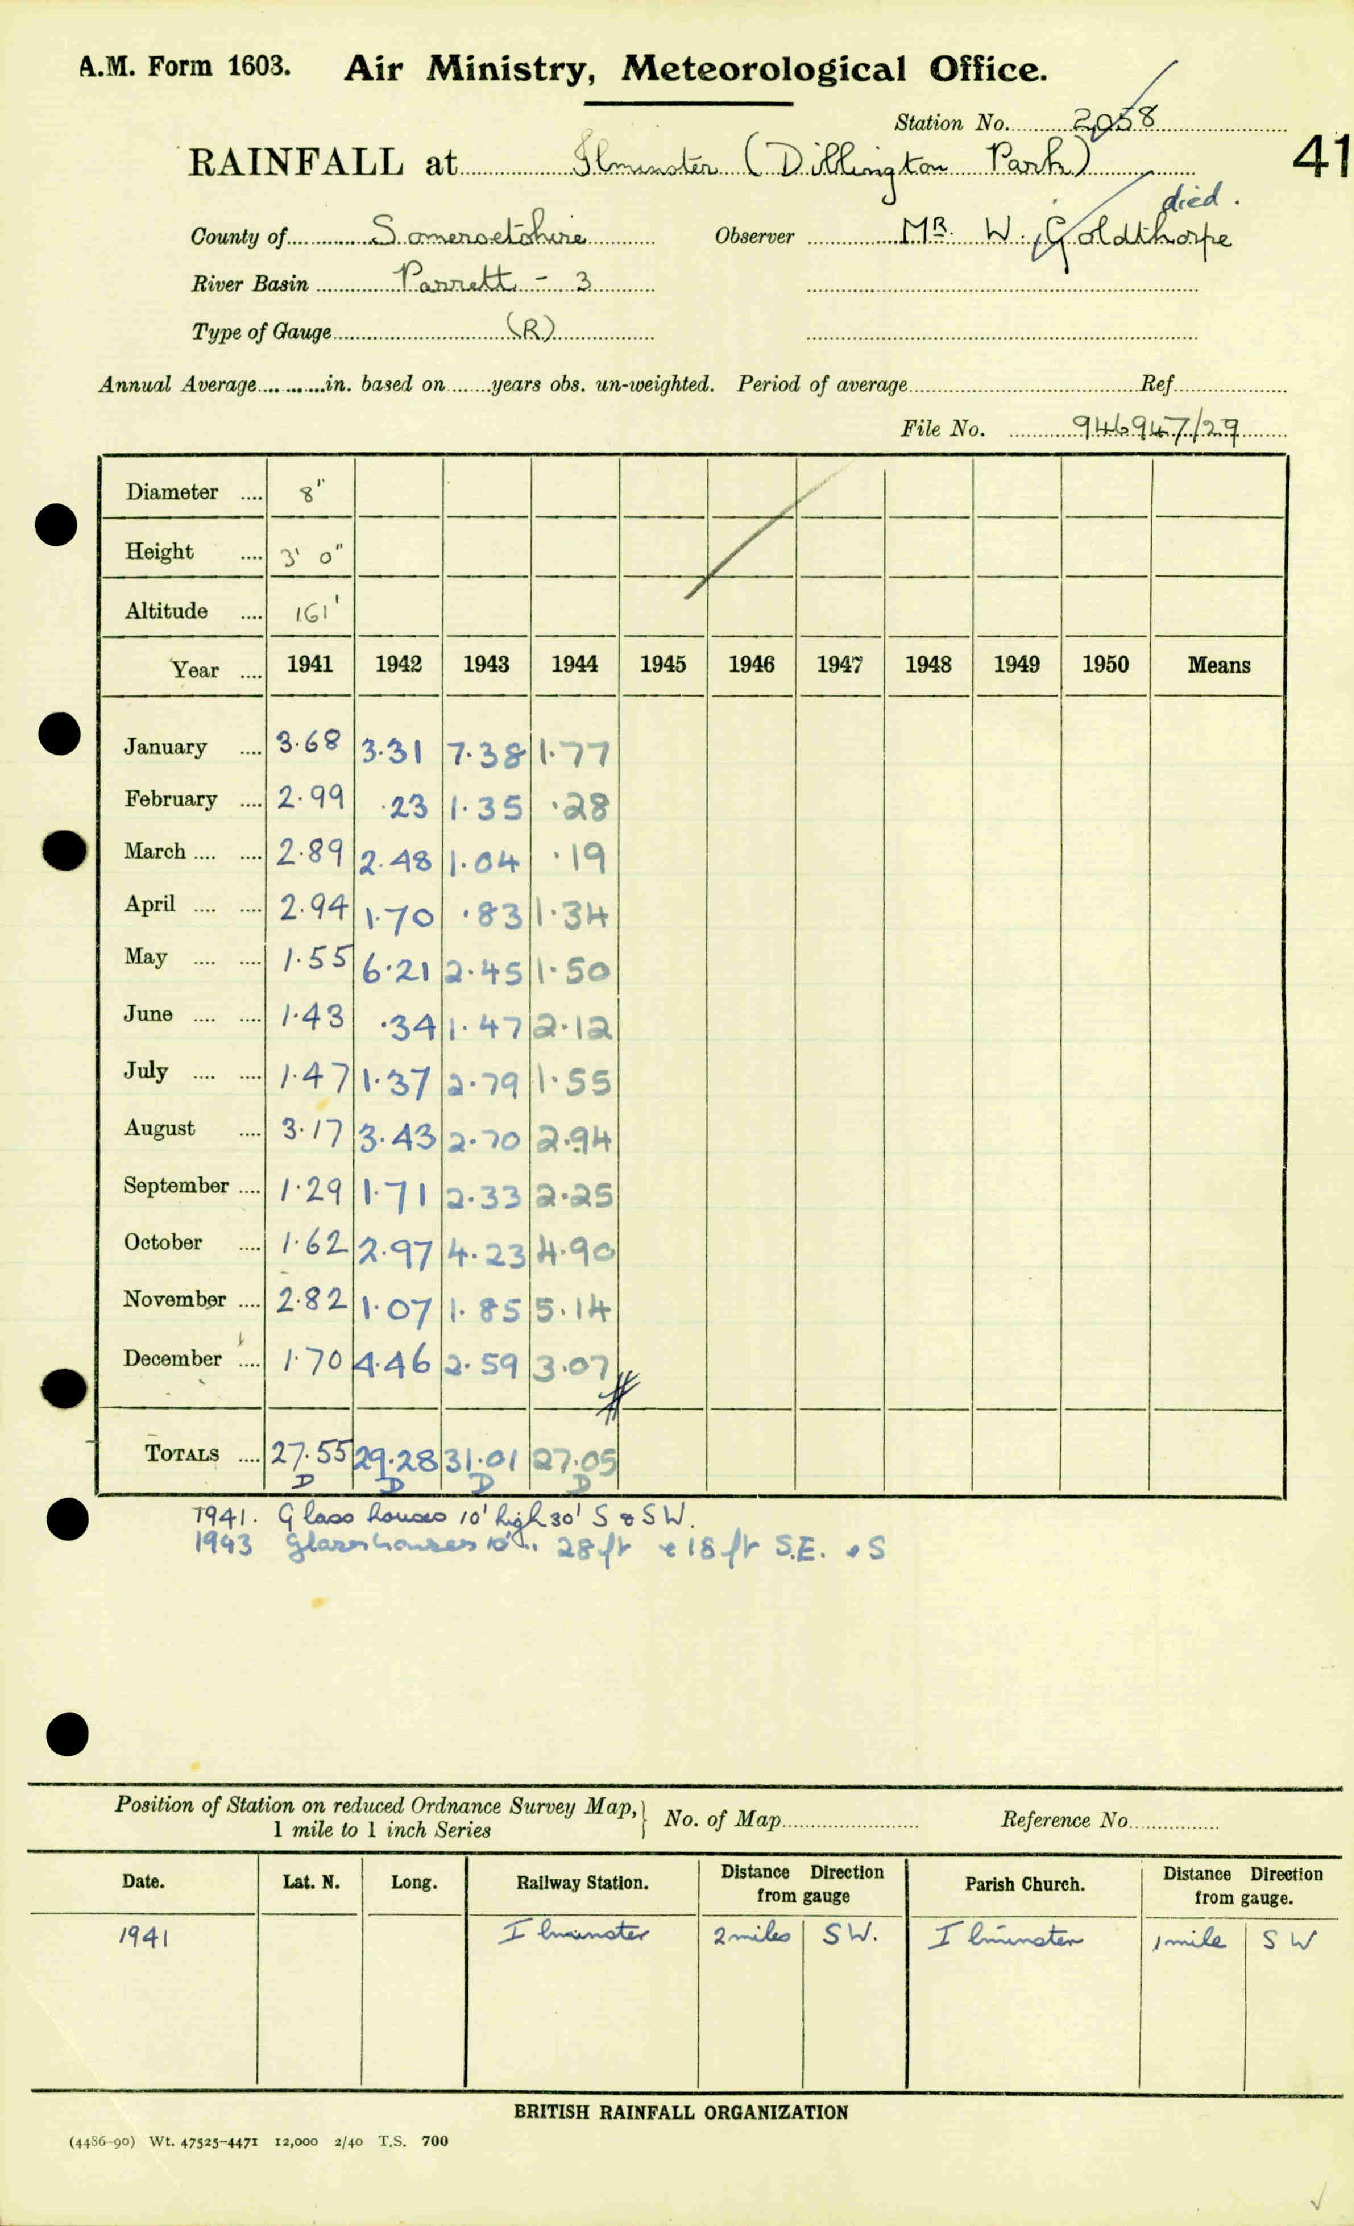 A.M. Form 1603. Air Ministry, Meteorological Office.
Station No. 2058
RAINFALL at Ilminster (Dillington Park) 41
died.
County of Somersetshire Observer MR. W. Goldthorpe
River Basin Parrett - 3
Type of Gauge (R)
Annual Average in. based on years obs. un-weighted. Period of average Ref
File No. 946947/29
Diameter 8"
Height 3' 0"
Altitude 161'
Year 1941 1942 1943 1944 1945 1946 1947 1948 1949 1950 Means
January 3.68 3.31 7.38 1.77
February 2.99 .23 1.35 .28
March 2.89 2.48 1.04 .19
April 2.94 1.70 .83 1.34
May 1.55 6.21 2.45 1.50
June 1.43 .34 1.47 2.12
July 1.47 1.37 2.79 1.55
August 3.17 3.43 2.70 2.94
September 1.29 1.71 2.33 2.25
October 1.62 2.97 4.23 4.90
November 2.82 1.07 1.85 5.14
December 1.70 4.46 2.59 3.07
TOTALS 27.55 29.28 31.01 27.05
D D D D
1941. Glass houses 10' high 30' S & SW.
1943 Glasshouses 10' 28 ft & 18 ft S.E. & S
Position of Station on reduced Ordnance Survey Map, No. of Map Reference No.
1 mile to 1 inch Series
Date. Lat. N. Long. Railway Station. Distance Direction from gauge Parish Church. Distance Direction from gauge.
1941 Ilminster 2 miles SW. Ilminster 1 mile SW
BRITISH RAINFALL ORGANIZATION
(4486-90) Wt. 47525-4471 12,000 2/40 T.S. 700